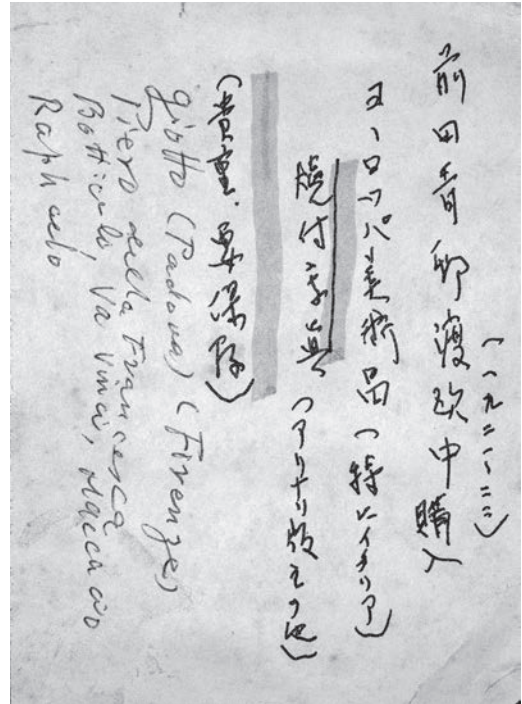 前田青邨渡欧中購入
ヨーロッパ美術品(特ニイタリア)
焼付写真(アリナリ版その他)
(貴重・要保存)
Giotto (Padova) (Firenze)
Piero della Francesca
Botticelo, Da Vinci,
Raphaelo